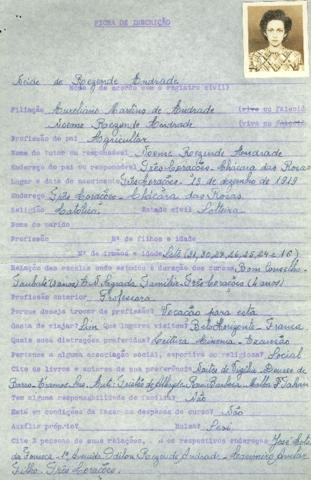 FICHA DE INSCRIÇÃO
Neide de Rezende Andrade
Nome (de acordo com o registro civil)
Filiação Aureliano Martins de Andrade (vivo ou falecido
Noeme Rezende Andrade (viva ou falecida
Profissão do pai Agricultor
Nome do tutor ou responsável Noeme Rezende Andrade
Endereço do pai ou responsável Três Corações - Chácara das Rosas
Lugar e data de nascimento Três Corações - 13 de dezembro de 1919
Endereço Três Corações - Chácara das Rosas
Religião Católica Estado civil Solteira
Nome do marido
Profissão Nº de filhos e idade
Nº de irmãos e idade Sete (31, 30, 27, 26, 25, 24 e 16)
Relação das escolas onde estudou e duração dos cursos Bom Conselho
Taubaté (3 anos) E. N. Sagrada Família - Três Corações (4 anos)
Profissão anterior Professora
Porque deseja trocar de profissão? Vocação para esta
Gosta de viajar? Sim Que lugares visitou? Belo Horizonte - Franca
Quais suas distrações preferidas? Leitura - Cinema - Excursão
Pertence a alguma associação social, esportiva ou religiosa? Social
Cite os livros e autores de sua preferência Noites de Vigília - Deuses de
Barro
Tem alguma responsabilidade de família? Não
Está em condições de fazer as despesas do curso? Não
Auxílio próprio? Bolsa? Sesi
Cite 3 pessoas de suas relações, e os respectivos endereços José
da Fonseca - Odilon Rezende Andrade - Aguiar
Filho - Três Corações.